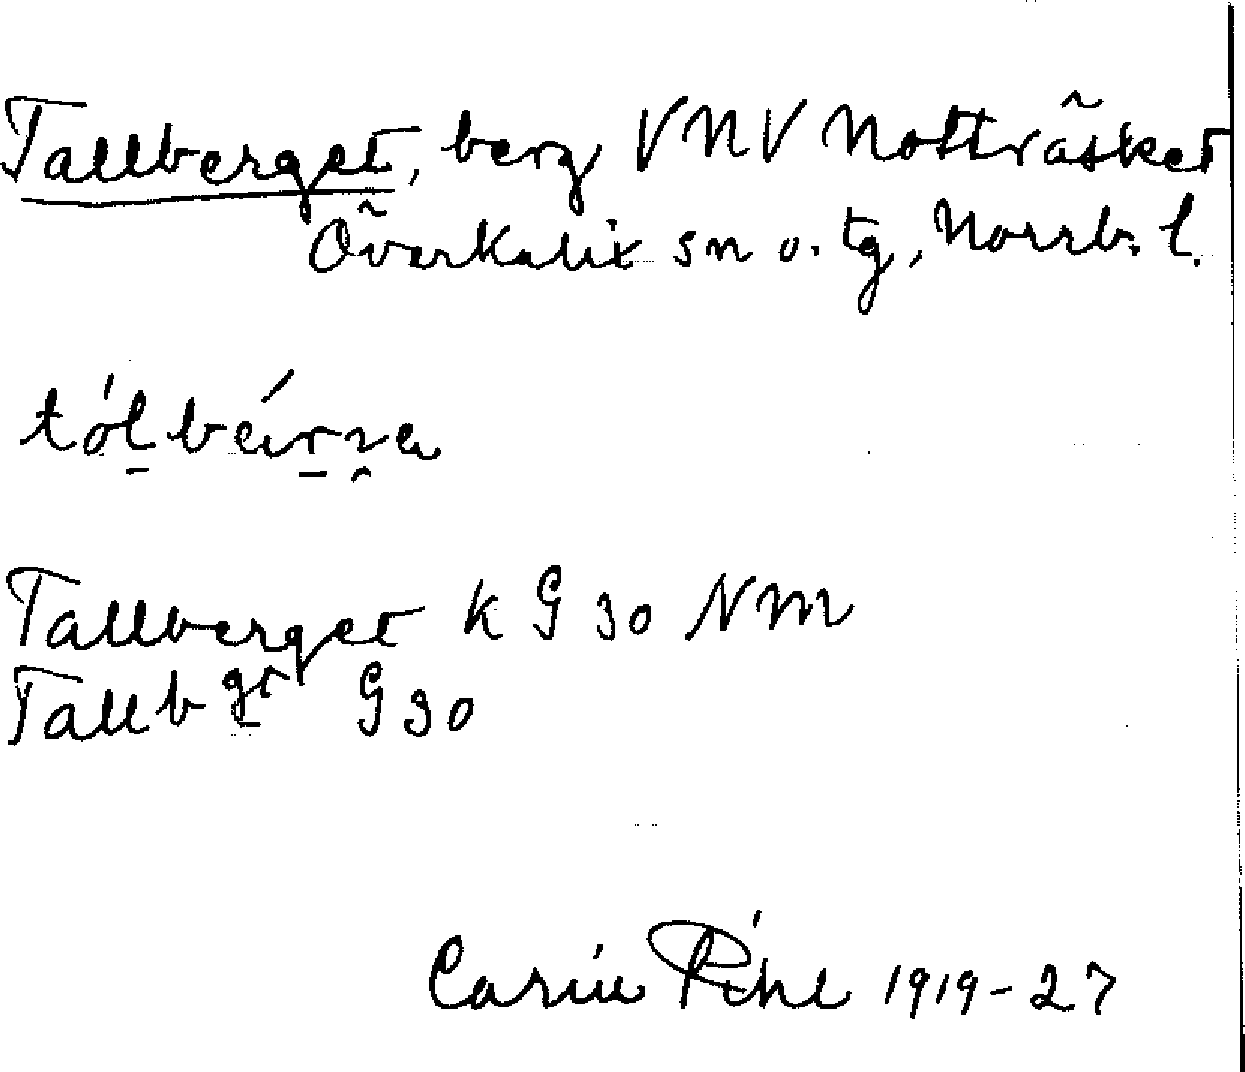 Tallberget, berg VNV Notträsket
Överkalix sn o. tg, Norrb. l.
Tallberget k G 30 NM
Tallbgt G 30
Carin Pihl 1919-27